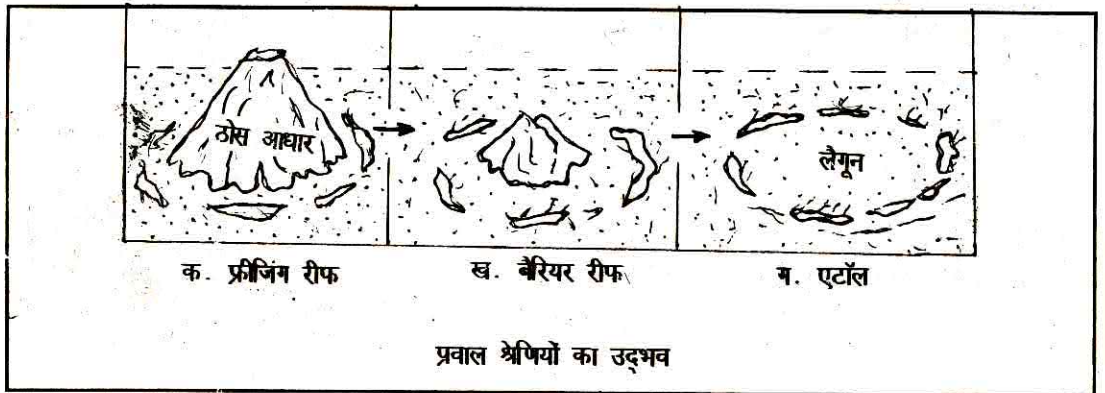 ठोस आधार
लैगून
क. फ्रीजिंग रीफ
ख. बैरियर रीफ
ग. एटॉल
प्रवाल श्रेणियों का उद्भव